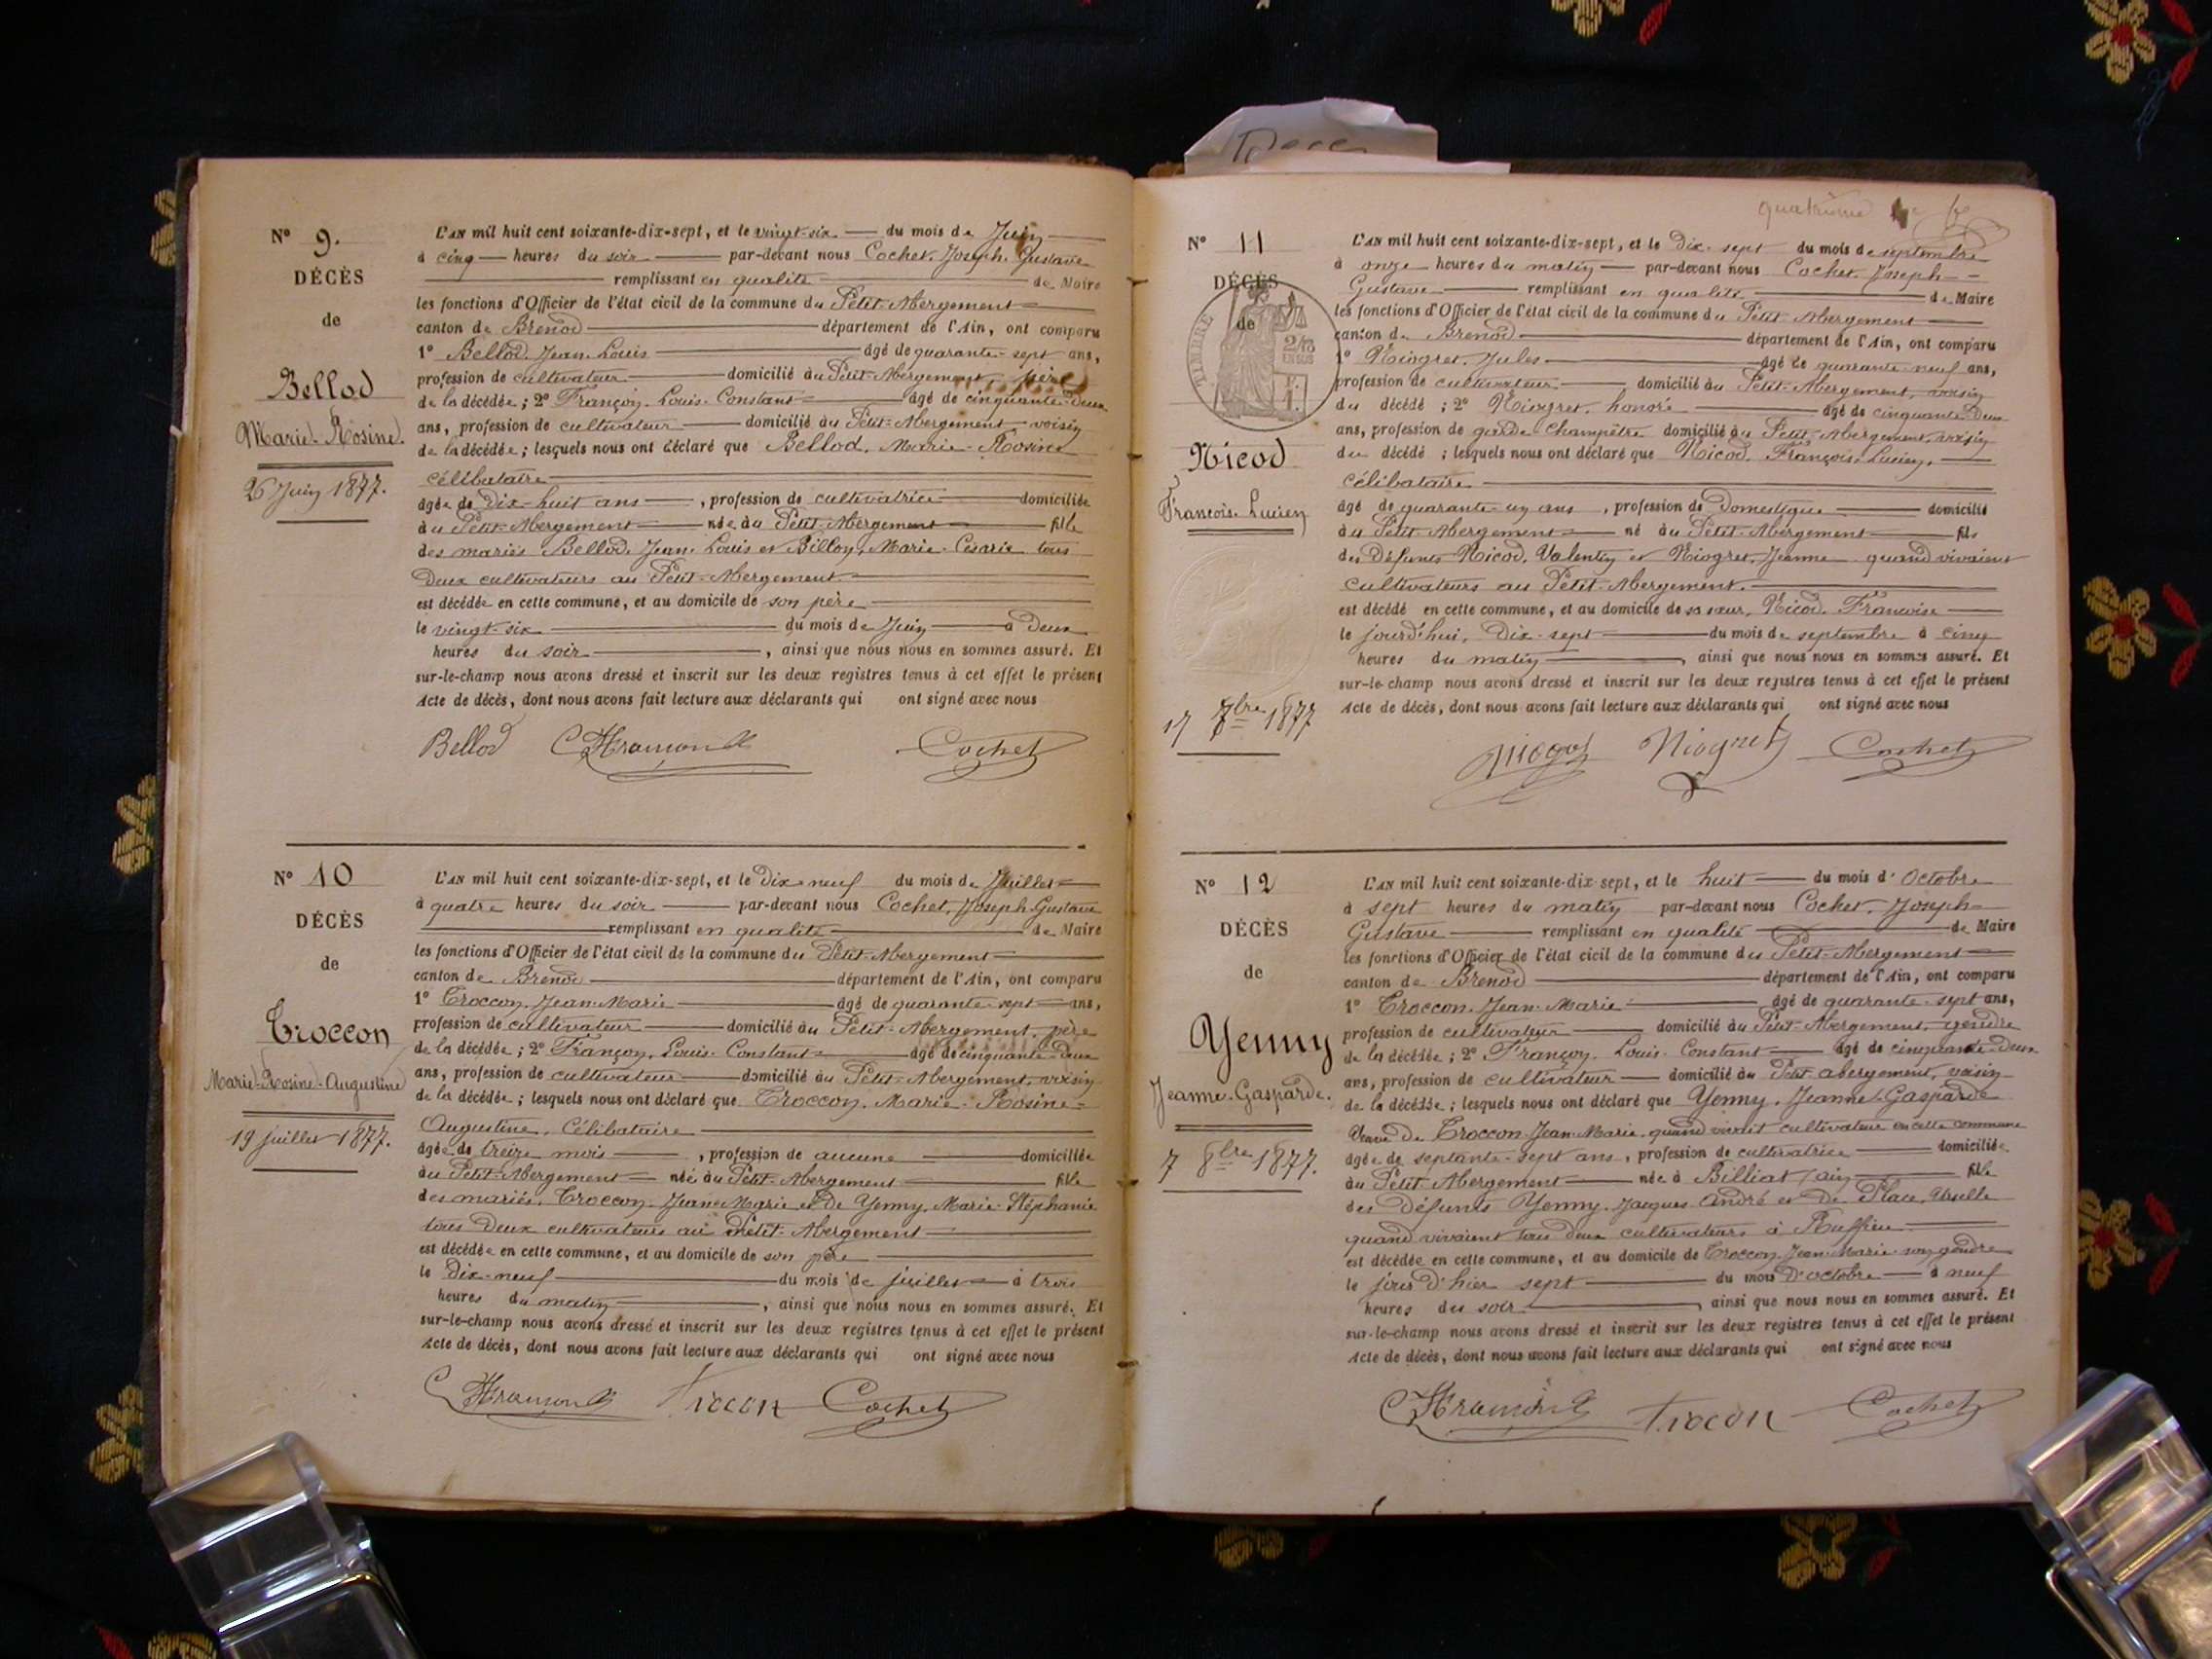 Nº 9.
DÉCÈS
de
Bellod
Marie-Rosine.
26 Juin 1877.
L'AN mil huit cent soixante-dix-sept, et le vingt-six du mois de Juin
à cinq heures du soir par-devant nous Cochet, Joseph, Gustave
remplissant en qualité de Maire
les fonctions d'Officier de l'état civil de la commune du Petit-Abergement
canton de Brenod département de l'Ain, ont comparu
1º Bellod, Jean-Louis âgé de quarante-sept ans,
profession de cultivateur domicilié au Petit-Abergement, père
de la décédée; 2º Françon, Louis-Constant âgé de cinquante-deux
ans, profession de cultivateur domicilié au Petit-Abergement voisin
de la décédée; lesquels nous ont déclaré que Bellod, Marie-Rosine
célibataire
âgée de dix-huit ans, profession de cultivatrice domiciliée
au Petit-Abergement née au Petit-Abergement fille
des mariés Bellod, Jean-Louis et Billon, Marie-Césarie tous
deux cultivateurs au Petit-Abergement.
est décédée en cette commune, et au domicile de son père
le vingt-six du mois de Juin à deux
heures du soir, ainsi que nous nous en sommes assuré. Et
sur-le-champ nous avons dressé et inscrit sur les deux registres tenus à cet effet le présent
Acte de décès, dont nous avons fait lecture aux déclarants qui ont signé avec nous
Bellod Cochet
Nº 10
DÉCÈS
de
Troccon
Marie-Rosine-Augustine
19 juillet 1877.
L'AN mil huit cent soixante-dix-sept, et le dix-neuf du mois de Juillet
à quatre heures du soir par-devant nous Cochet, Joseph Gustave
remplissant en qualité de Maire
les fonctions d'Officier de l'état civil de la commune du Petit-Abergement
canton de Brenod département de l'Ain, ont comparu
1º Troccon, Jean-Marie âgé de quarante-sept ans,
profession de cultivateur domicilié au Petit-Abergement, père
de la décédée; 2º Françon, Louis-Constant âgé de cinquante-deux
ans, profession de cultivateur domicilié au Petit-Abergement, voisin
de la décédée; lesquels nous ont déclaré que Troccon, Marie-Rosine-
Augustine, célibataire
âgée de treize mois, profession de aucune domiciliée
au Petit-Abergement née au Petit-Abergement fille
des mariés, Troccon, Jean-Marie et de Yenny, Marie-Stéphanie
tous deux cultivateurs au Petit-Abergement
est décédée en cette commune, et au domicile de son père
le dix-neuf du mois de juillet à trois
heures du matin, ainsi que nous nous en sommes assuré. Et
sur-le-champ nous avons dressé et inscrit sur les deux registres tenus à cet effet le présent
Acte de décès, dont nous avons fait lecture aux déclarants qui ont signé avec nous
trocon Cochet
quatrième
Nº 11
DÉCÈS
de
TIMBRE
2/10
EN SUS
Nicod
François-Lucien
17 7bre 1877
L'AN mil huit cent soixante-dix-sept, et le dix-sept du mois de septembre
à onze heures du matin par-devant nous Cochet, Joseph-
Gustave remplissant en qualité de Maire
les fonctions d'Officier de l'état civil de la commune du Petit-Abergement
canton de Brenod département de l'Ain, ont comparu
1º Niogret, Jules âgé de quarante-neuf ans,
profession de cultivateur domicilié au Petit-Abergement, voisin
du décédé; 2º Niogret, honoré âgé de cinquante-deux
ans, profession de garde-champêtre domicilié au Petit-Abergement, voisin
du décédé; lesquels nous ont déclaré que Nicod, François, Lucien,
célibataire
âgé de quarante-un ans, profession de domestique domicilié
au Petit-Abergement né au Petit-Abergement fils
des défunts Nicod, Valentin et Niogret, Jeanne quand vivaient
cultivateurs au Petit-Abergement.
est décédé en cette commune, et au domicile de sa sœur, Nicod, Francoise
le jourd'hui, dix-sept du mois de septembre à cinq
heures du matin, ainsi que nous nous en sommes assuré. Et
sur-le-champ nous avons dressé et inscrit sur les deux registres tenus à cet effet le présent
Acte de décès, dont nous avons fait lecture aux déclarants qui ont signé avec nous
Niogret Cochet
Nº 12
DÉCÈS
de
Yenny
Jeanne-Gasparde.
7 8bre 1877.
L'AN mil huit cent soixante-dix-sept, et le huit du mois d'Octobre
à sept heures du matin par-devant nous Cochet, Joseph-
Gustave remplissant en qualité de Maire
les fonctions d'Officier de l'état civil de la commune du Petit-Abergement
canton de Brenod département de l'Ain, ont comparu
1º Troccon, Jean-Marie âgé de quarante-sept ans,
profession de cultivateur domicilié au Petit-Abergement, gendre
de la décédée; 2º Françon, Louis-Constant âgé de cinquante-deux
ans, profession de cultivateur domicilié au Petit abergement, voisin
de la décédée; lesquels nous ont déclaré que Yenny, Jeanne-Gasparde
Veuve de Troccon Jean-Marie, quand vivait cultivateur en cette commune
âgée de septante-sept ans, profession de cultivatrice domiciliée
au Petit Abergement née à Billiat (ain) fille
des défunts Yenny, Jacques André et de Place, Ursulle
quand vivaient tous deux cultivateurs à Ruffieu
est décédée en cette commune, et au domicile de Troccon, Jean-Marie son gendre
le jour d'hier sept du mois d'octobre à neuf
heures du soir, ainsi que nous nous en sommes assuré. Et
sur-le-champ nous avons dressé et inscrit sur les deux registres tenus à cet effet le présent
Acte de décès, dont nous avons fait lecture aux déclarants qui ont signé avec nous
trocon Cochet